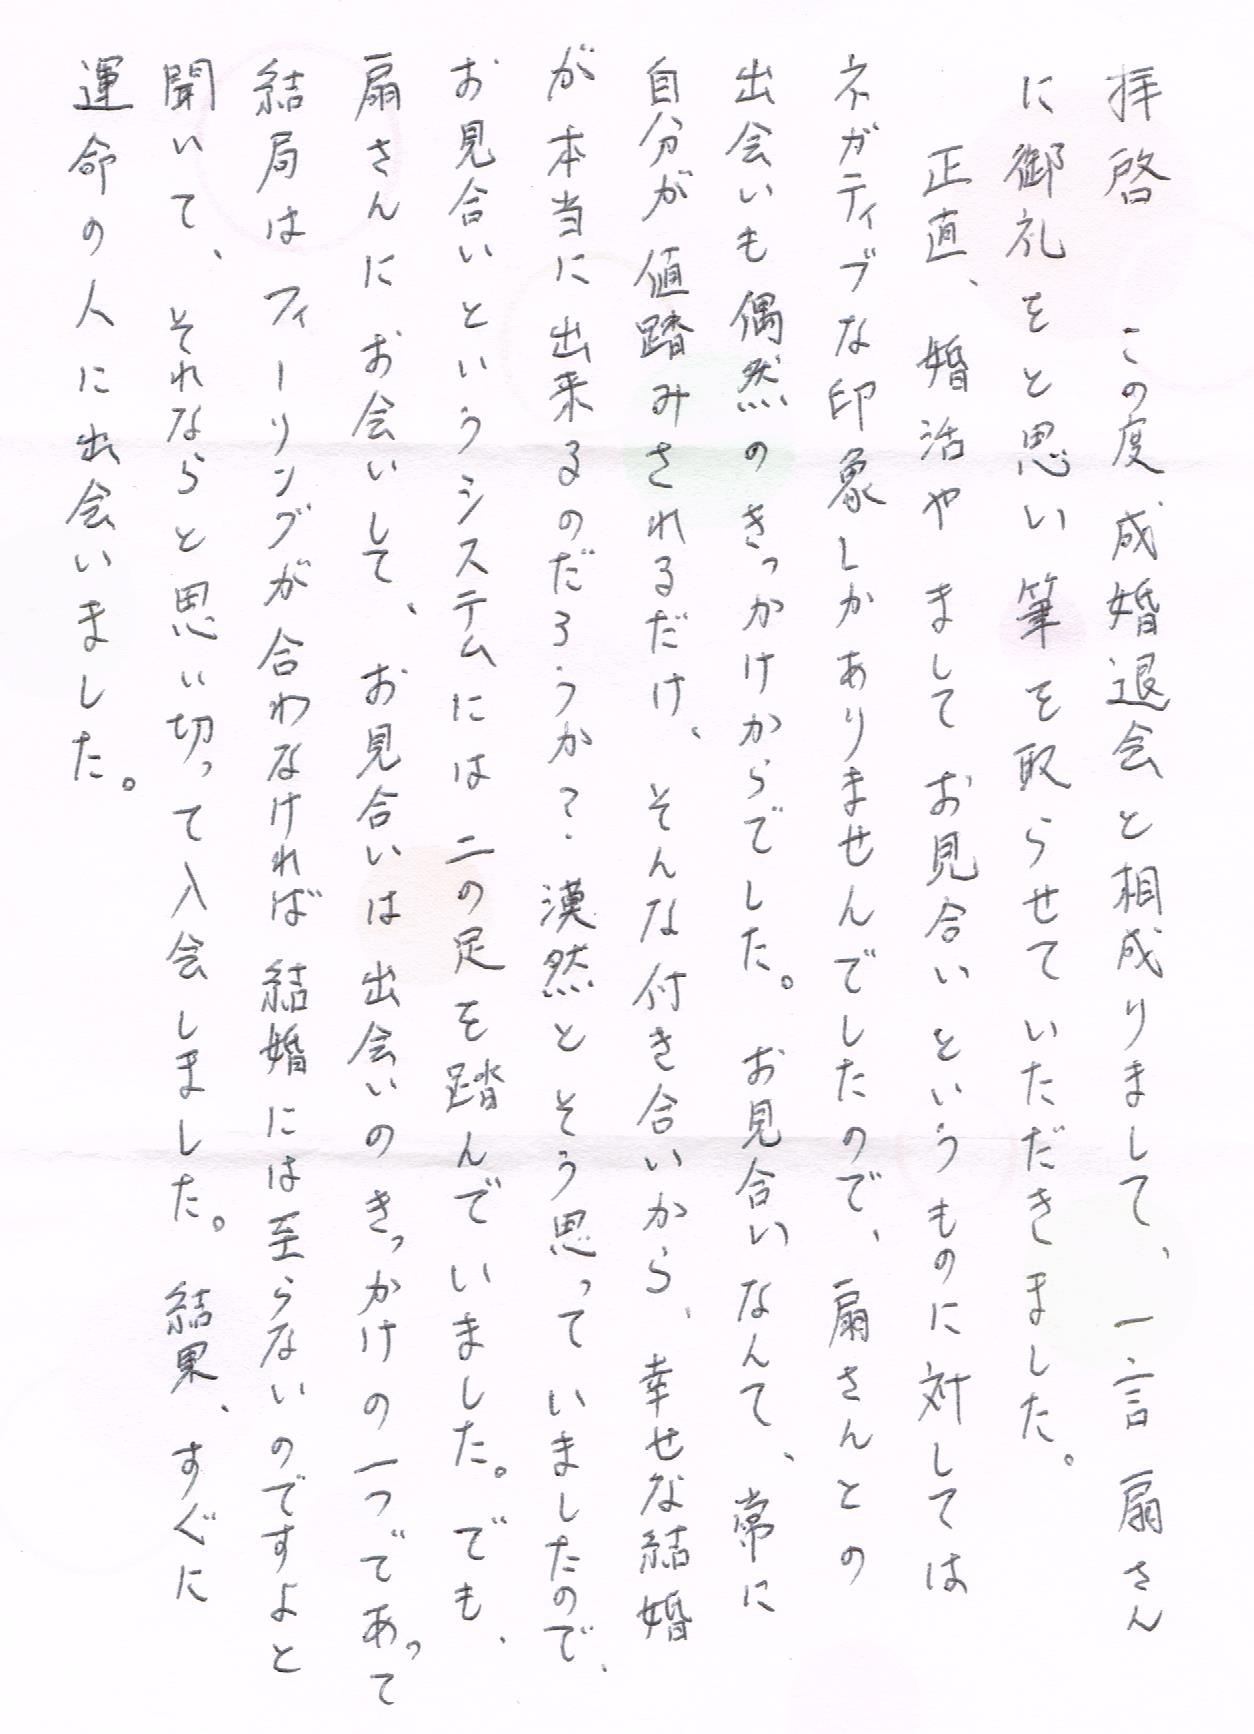 拝啓 この度成婚退会と相成りまして、一言扇さん
に御礼をと思い筆を取らせていただきました。
正直、婚活や ましてお見合いというものに対しては
ネガティブな印象しかありませんでしたので、扇さんとの
出会いも偶然のきっかけからでした。お見合いなんて、常に
自分が値踏みされるだけ、そんな付き合いから、幸せな結婚
が本当に出来るのだろうか?漠然とそう思っていましたので、
お見合いというシステムには二の足を踏んでいました。でも、
扇さんにお会いして、お見合いは出会いのきっかけの一つであって
結局はフィーリングが合わなければ結婚には至らないのですよと
聞いて、それならと思い切って入会しました。結果、すぐに
運命の人に出会いました。